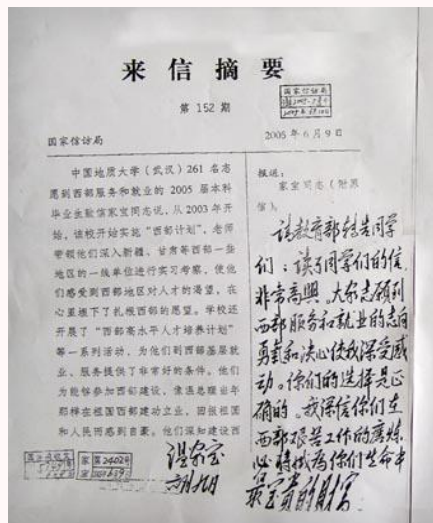 来信摘要
第 152 期
国家信访局
2005 年 6 月 9 日
中国地质大学（武汉）261 名志
愿到西部服务和就业的 2005 届本科
毕业生致信家宝同志说，从 2003 年开
始，该校开始实施“西部计划”，老师
带领他们深入新疆、甘肃等西部一些
地区的一线单位进行实习考察，使他
们感受到西部地区对人才的渴望，在
心里埋下了扎根西部的愿望。学校还
开展了“西部高水平人才培养计划”
等一系列活动，为他们到西部基层就
业、服务提供了非常好的条件。他们
为能够参加西部建设，像温总理当年
那样在祖国西部建功立业，回报祖国
和人民而感到自豪。他们深知建设西
报送：
家宝同志（附原
信）。
请教育部转告同学
们：读了同学们的信，
非常高兴。大家志愿到
西部服务和就业的志向
勇气和决心使我深受感
动。你们的选择是正
确的。我深信你们在
西部艰苦工作的磨炼
必将成为你们生命中
最宝贵的财富。
温家宝
国家信访局